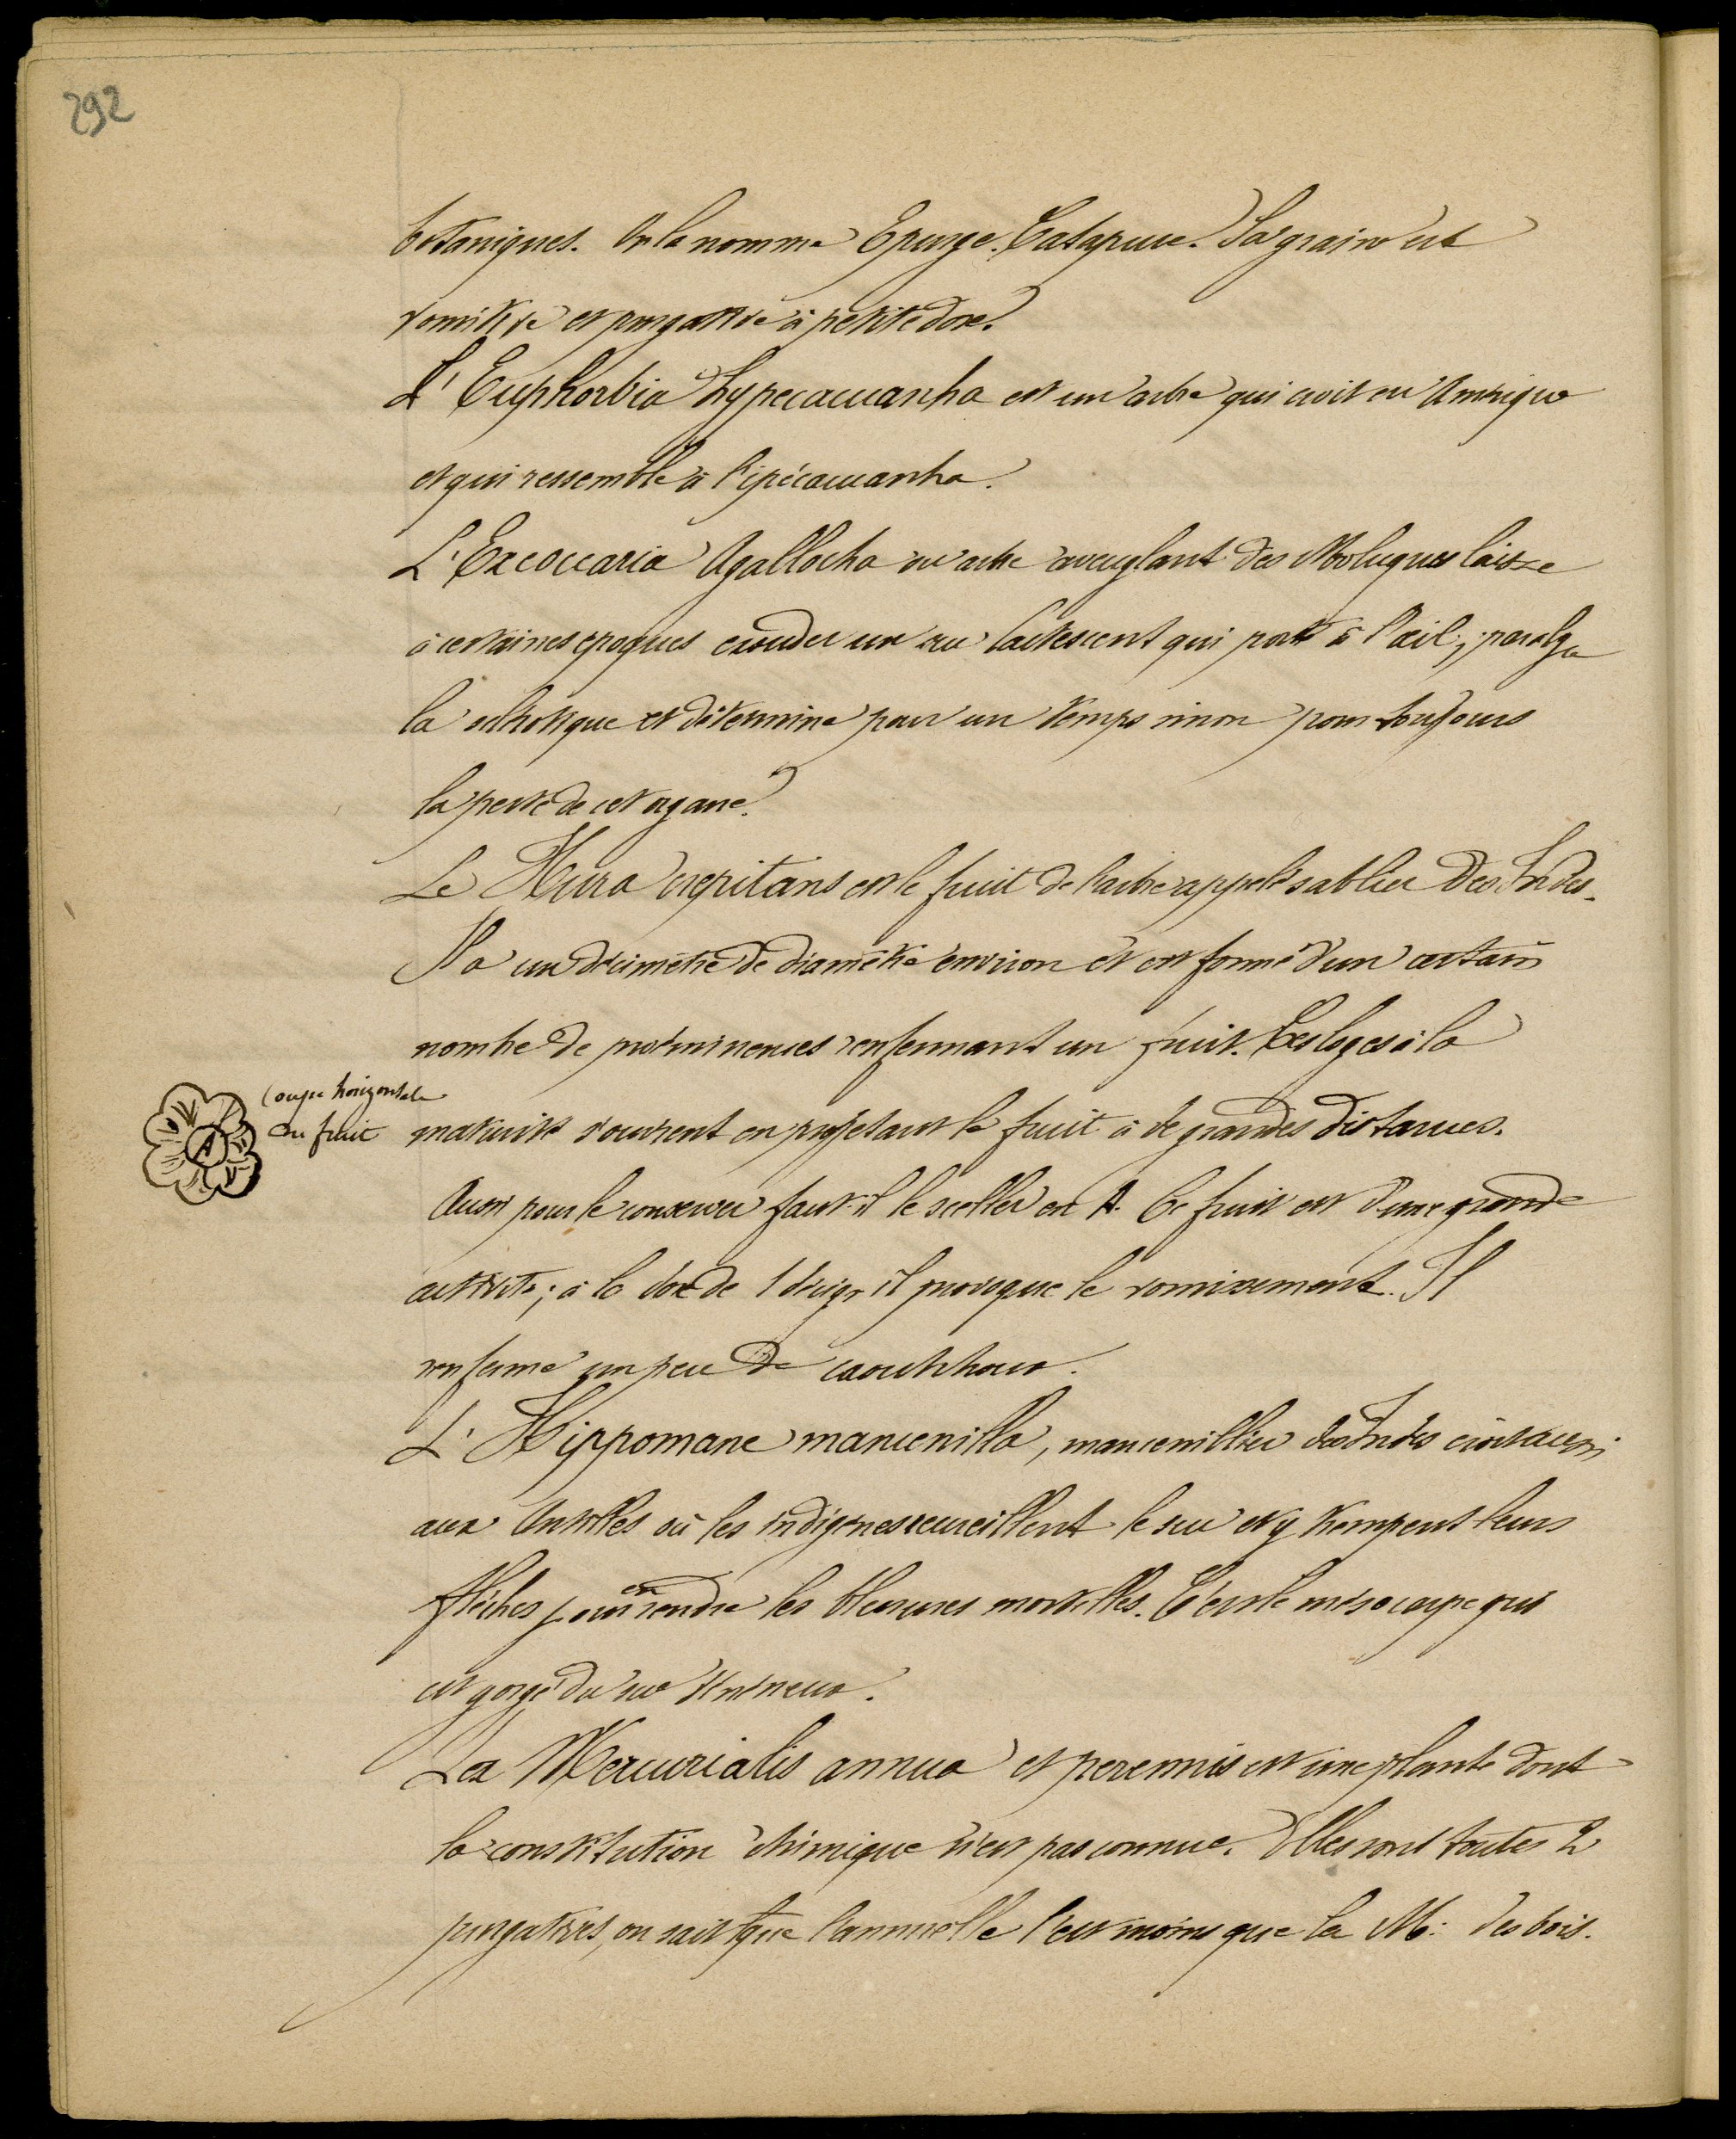 292
botaniques. On la nomme Epurge. Catapuce. Sa graine est
vomitive et purgative à petite dose.
L'Euphorbia hypecacuanha est un arbre qui croit en Amérique
et qui ressemble à l'ipécacuanha.
L'Excoecaria Agallocha ou arbre aveuglant des Moluques laisse
à certaines époques exsuder un suc lactescent qui porté à l'œil, paralyse
la sclérotique et détermine pour un temps sinon pour toujours
la perte de cet organe.
Le Hura crepitans est le fruit de l'arbre appelé sablier des Indes.
Il a un décimètre de diamètre environ et est formé d'un certain
nombre de proéminences renfermant un fruit. Ces loges à la
Coupe horizontale
du fruit
A
maturité s'ouvrent en projetant le fruit à de grandes distances.
Aussi pour le conserver faut-il le sceller en A. Ce fruit est d'une grande
activité; à la dose de 1 décigr il provoque le vomissement. Il
renferme un peu de caoutchouc.
L'Hippomane mancenilla, mancenillier des Indes croit aussi
aux Antilles où les indigènes recueillent le suc et y trempent leurs
flèches pour en rendre les blessures mortelles. C'est le mésocarpe qui
est gorgé du suc vénéneux.
La Mercurialis annua et perennis est une plante dont
la constitution chimique n'est pas connue. Elles sont toutes 2
purgatives, on sait que l'annuelle l'est moins que la M. des bois.